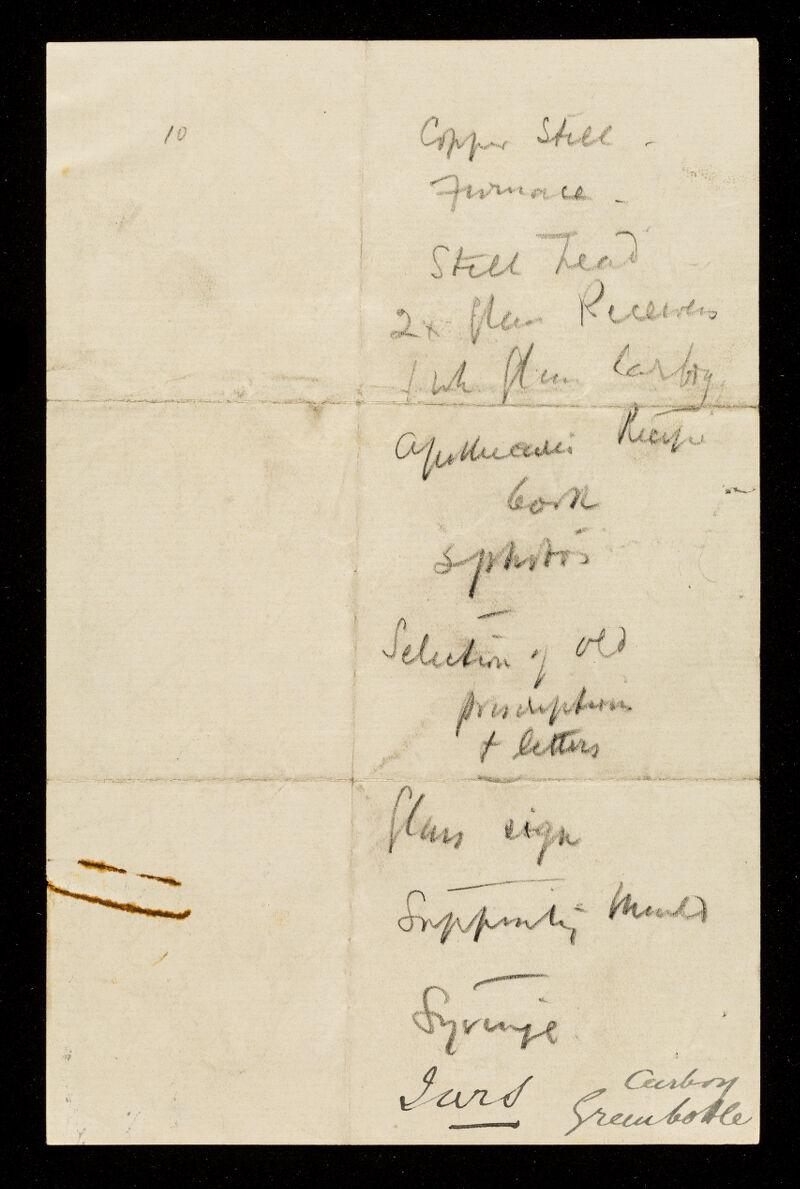 10
Copper Still -
Furnace -
Still head
2 x Glass Receivers
1 wh Glass Carboy
Apothecaries Recipe
book
5 photos
Selection of old
prescriptions
& letters
Glass sign
Suppository Mould
Syringe
Jars
Carboy
Green bottle